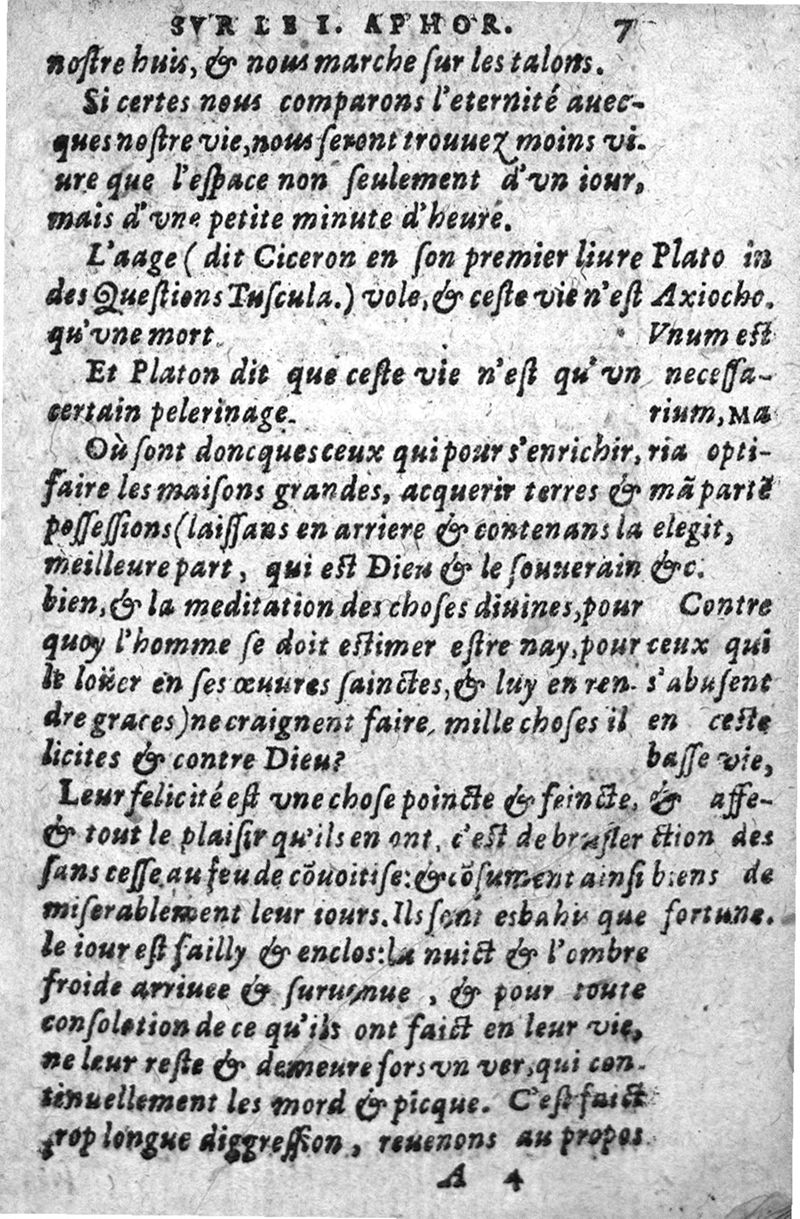 SVR LE I. APHOR. 7
noſtre huis, & nous marche ſur les talons.
Si certes nous comparons l'eternité auec-
ques noſtre vie, nous ſeront trouuez moins vi-
ure que l'eſpace non ſeulement d'vn iour,
mais d'vne petite minute d'heure.
L'aage ( dit Ciceron en ſon premier liure
des Queſtions Tuſcula.) vole, & ceſte vie n'eſt
qu'vne mort
Et Platon dit que ceſte vie n'eſt qu'vn
certain pelerinage.
Où ſont doncques ceux qui pour s'enrichir,
faire les maiſons grandes, acquerir terres &
poſſeſſions (laiſſans en arriere & contenans la
meilleure part, qui eſt Dieu & le ſouuerain
bien, & la meditation des choſes diuines, pour
quoy l'homme ſe doit eſtimer eſtre nay, pour
le loüer en ſes œuures ſainctes, & luy en ren-
dre graces) ne craignent faire, mille choſes il
licites & contre Dieu?
Leur felicité eſt vne choſe poincte & feincte,
& tout le plaiſir qu'ils en ont, c'eſt de bruſler
ſans ceſſe au feu de cõuoitiſe: & cõſument ainſi
miſerablement leur iours. Ils ſont esbahis que
le iour eſt failly & enclos: la nuict & l'ombre
froide arriuee & ſuruenue , & pour toute
conſolation de ce qu'ils ont faict en leur vie,
ne leur reſte & demeure fors vn ver, qui con-
tinuellement les mord & picque. C'eſt faict
trop longue diggreſſion, reuenons au propos
A 4
Plato in
Axiocho.
Vnum eſt
neceſſa-
rium, Ma
ria opti-
mã partẽ
elegit,
&c.
Contre
ceux qui
s'abuſent
en ceſte
baſſe vie,
& affe-
ction des
biens de
fortune.